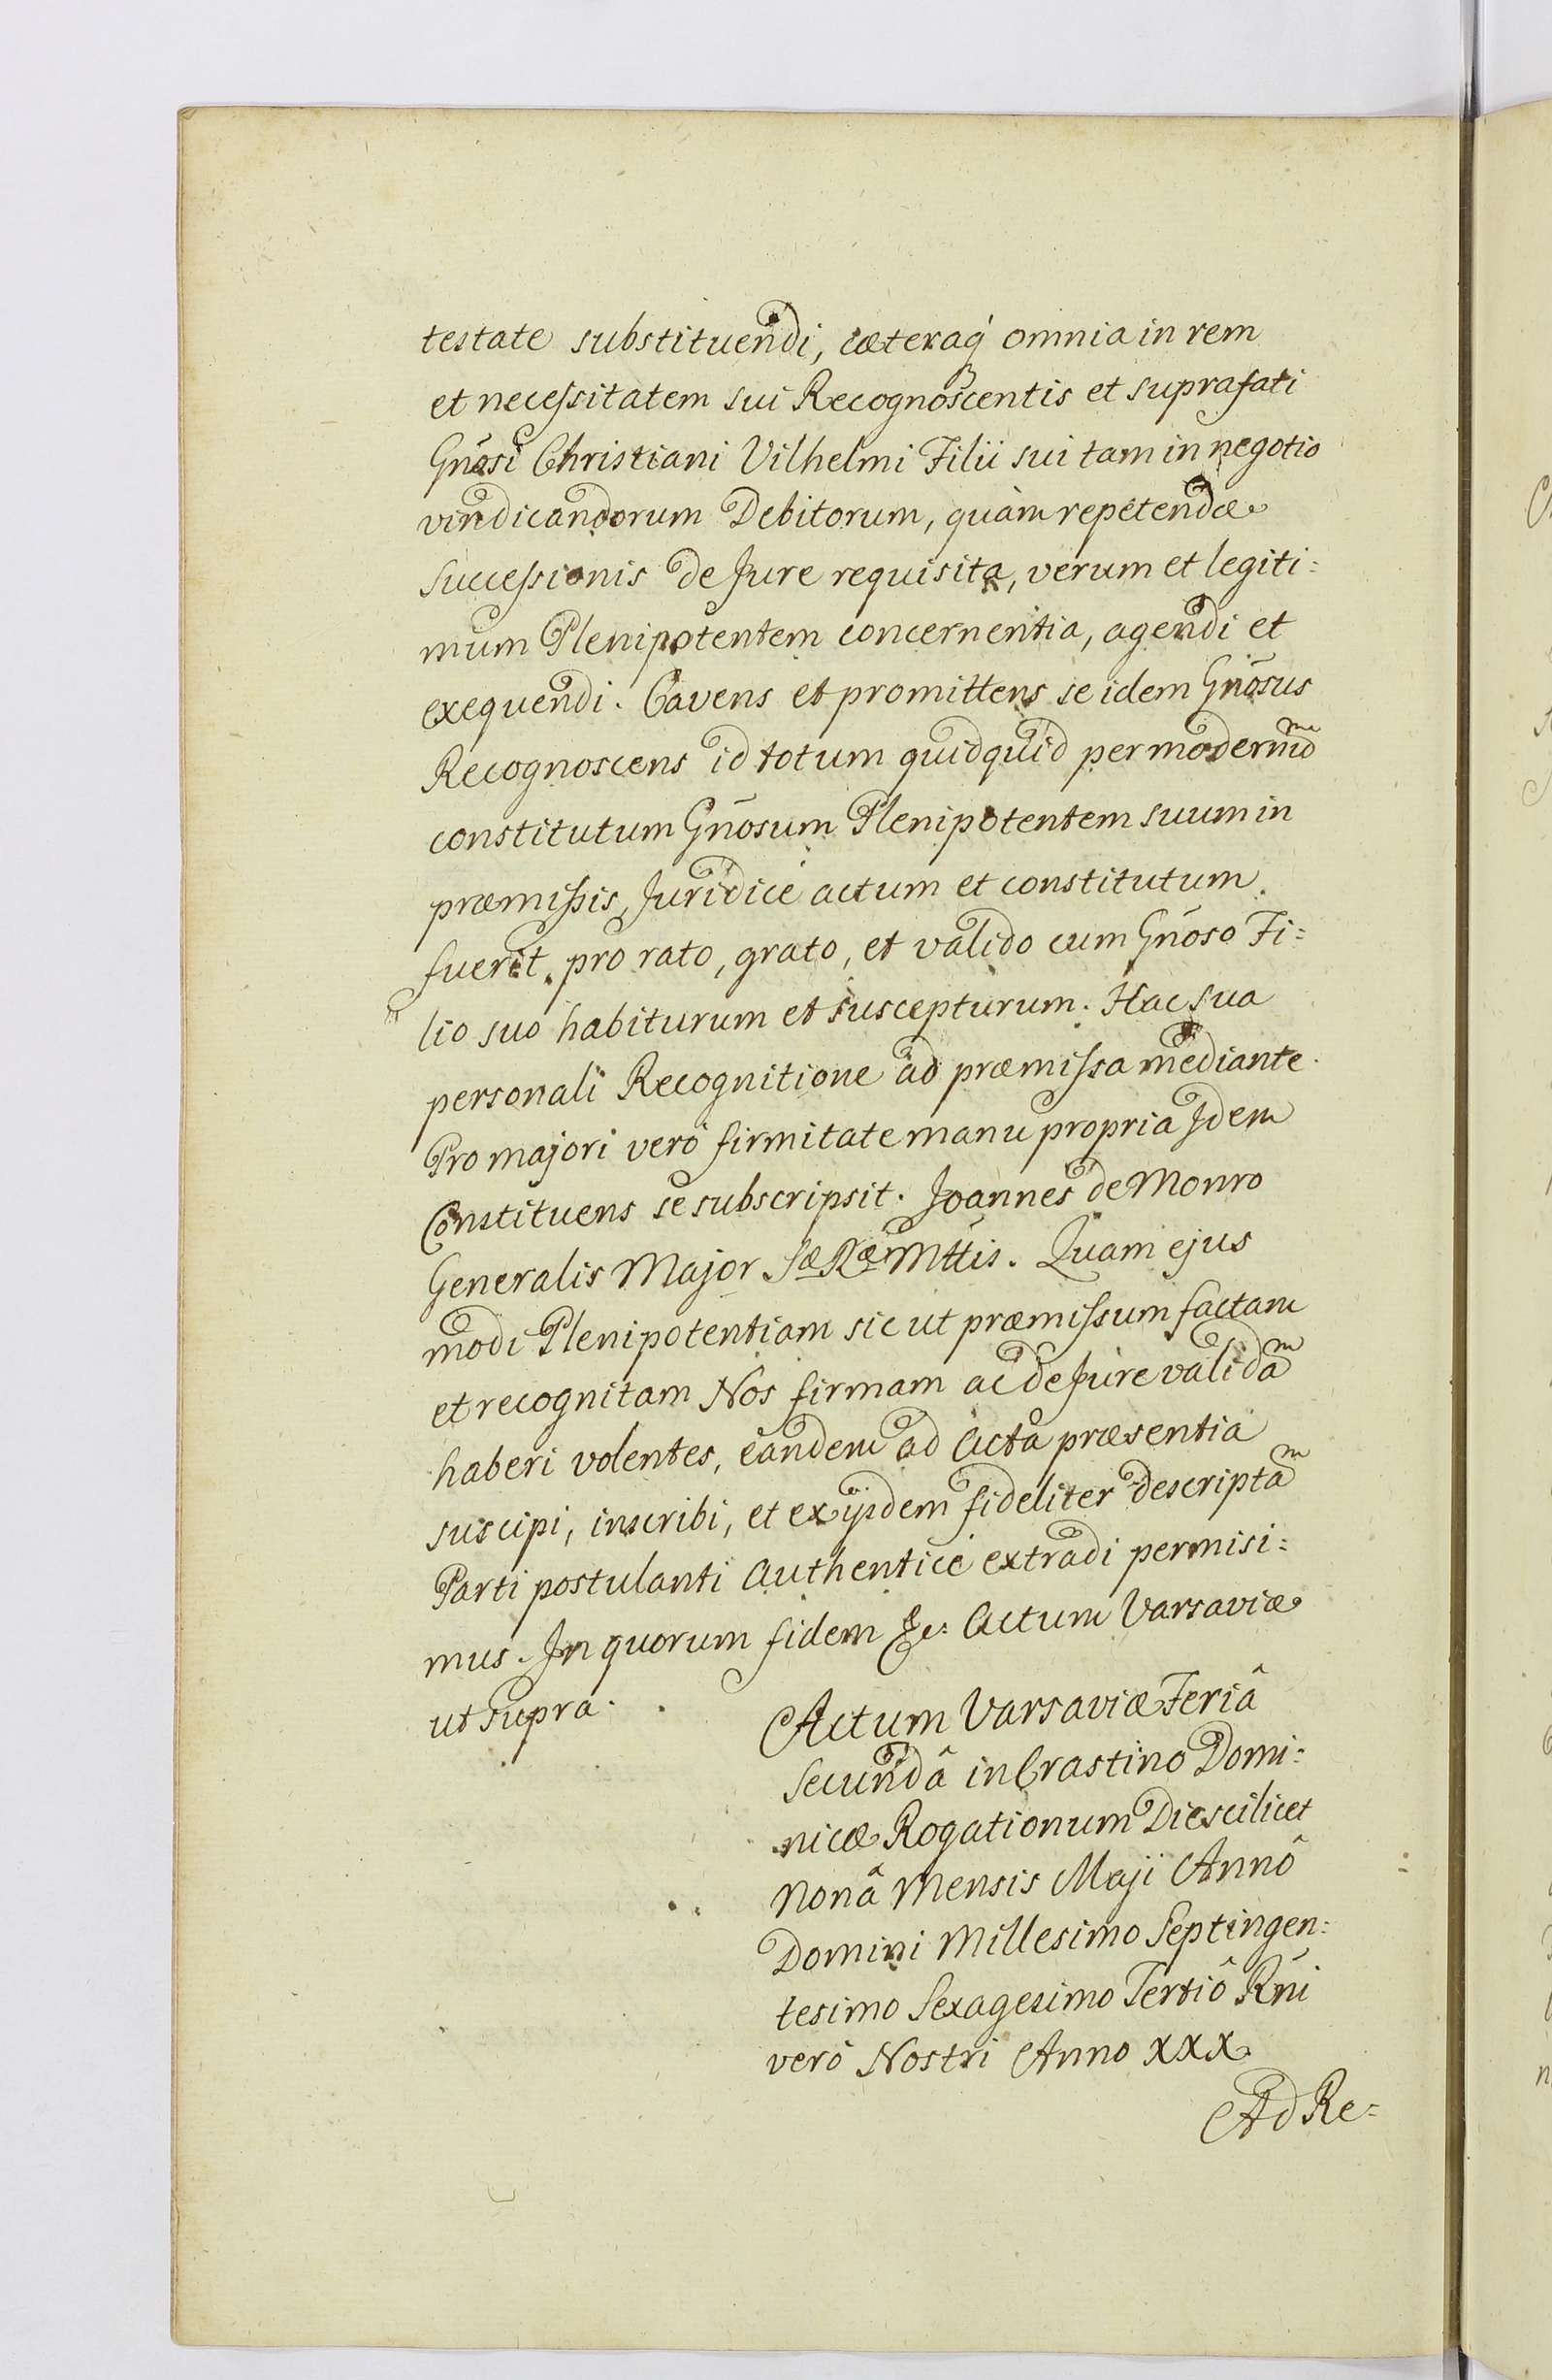 testate substituendi, cæteraq́ omnia in rem
et necessitatem sui Recognoscentis et suprafati
Gñosi Christiani Vilhelmi Filii sui tam in negotio
vindicandorum Debitorum, quàm repetendæ
Successionis de Jure requisita, verum et legiti=
mum Plenipotentem concernentia, agendi et
exequendi. Cavens et promittens se idem Gñosus
Recognoscens id totum quidquid per modernũ
constitutum Gñosum Plenipotentem suum in
præmissis, Juridicè actum et constitutum
fuerit, pro rato, grato, et valido cum Gñoso Fi=
lio suo habiturum et suscepturum. Hac sua
personali Recognitione ad præmissa mediante.
Pro majori verò firmitate manu propria Idem
Constituens se subscripsit. Joannes de Monro
Generalis Major Sæ Ræ Mttis. Quam ejus
modi Plenipotentiam sic ut præmissum factam
et recognitam Nos firmam ac de Jure validam
haberi volentes, eandem ad Acta præsentia
suscipi, inscribi, et ex ijsdem fideliter descriptam
Parti postulanti authenticè extradi permisi=
mus. In quorum fidem &c: Actum Varsaviæ
ut supra.
Actum Varsaviæ Feriâ
Secundâ in Crastino Domi=
nicæ Rogationum Die scilicet
Nonâ Mensis Maji Annô
Domini Millesimo Septingen=
tesimo Sexagesimo Tertiô Rñi
verò Nostri Anno XXX.
Ad Re=